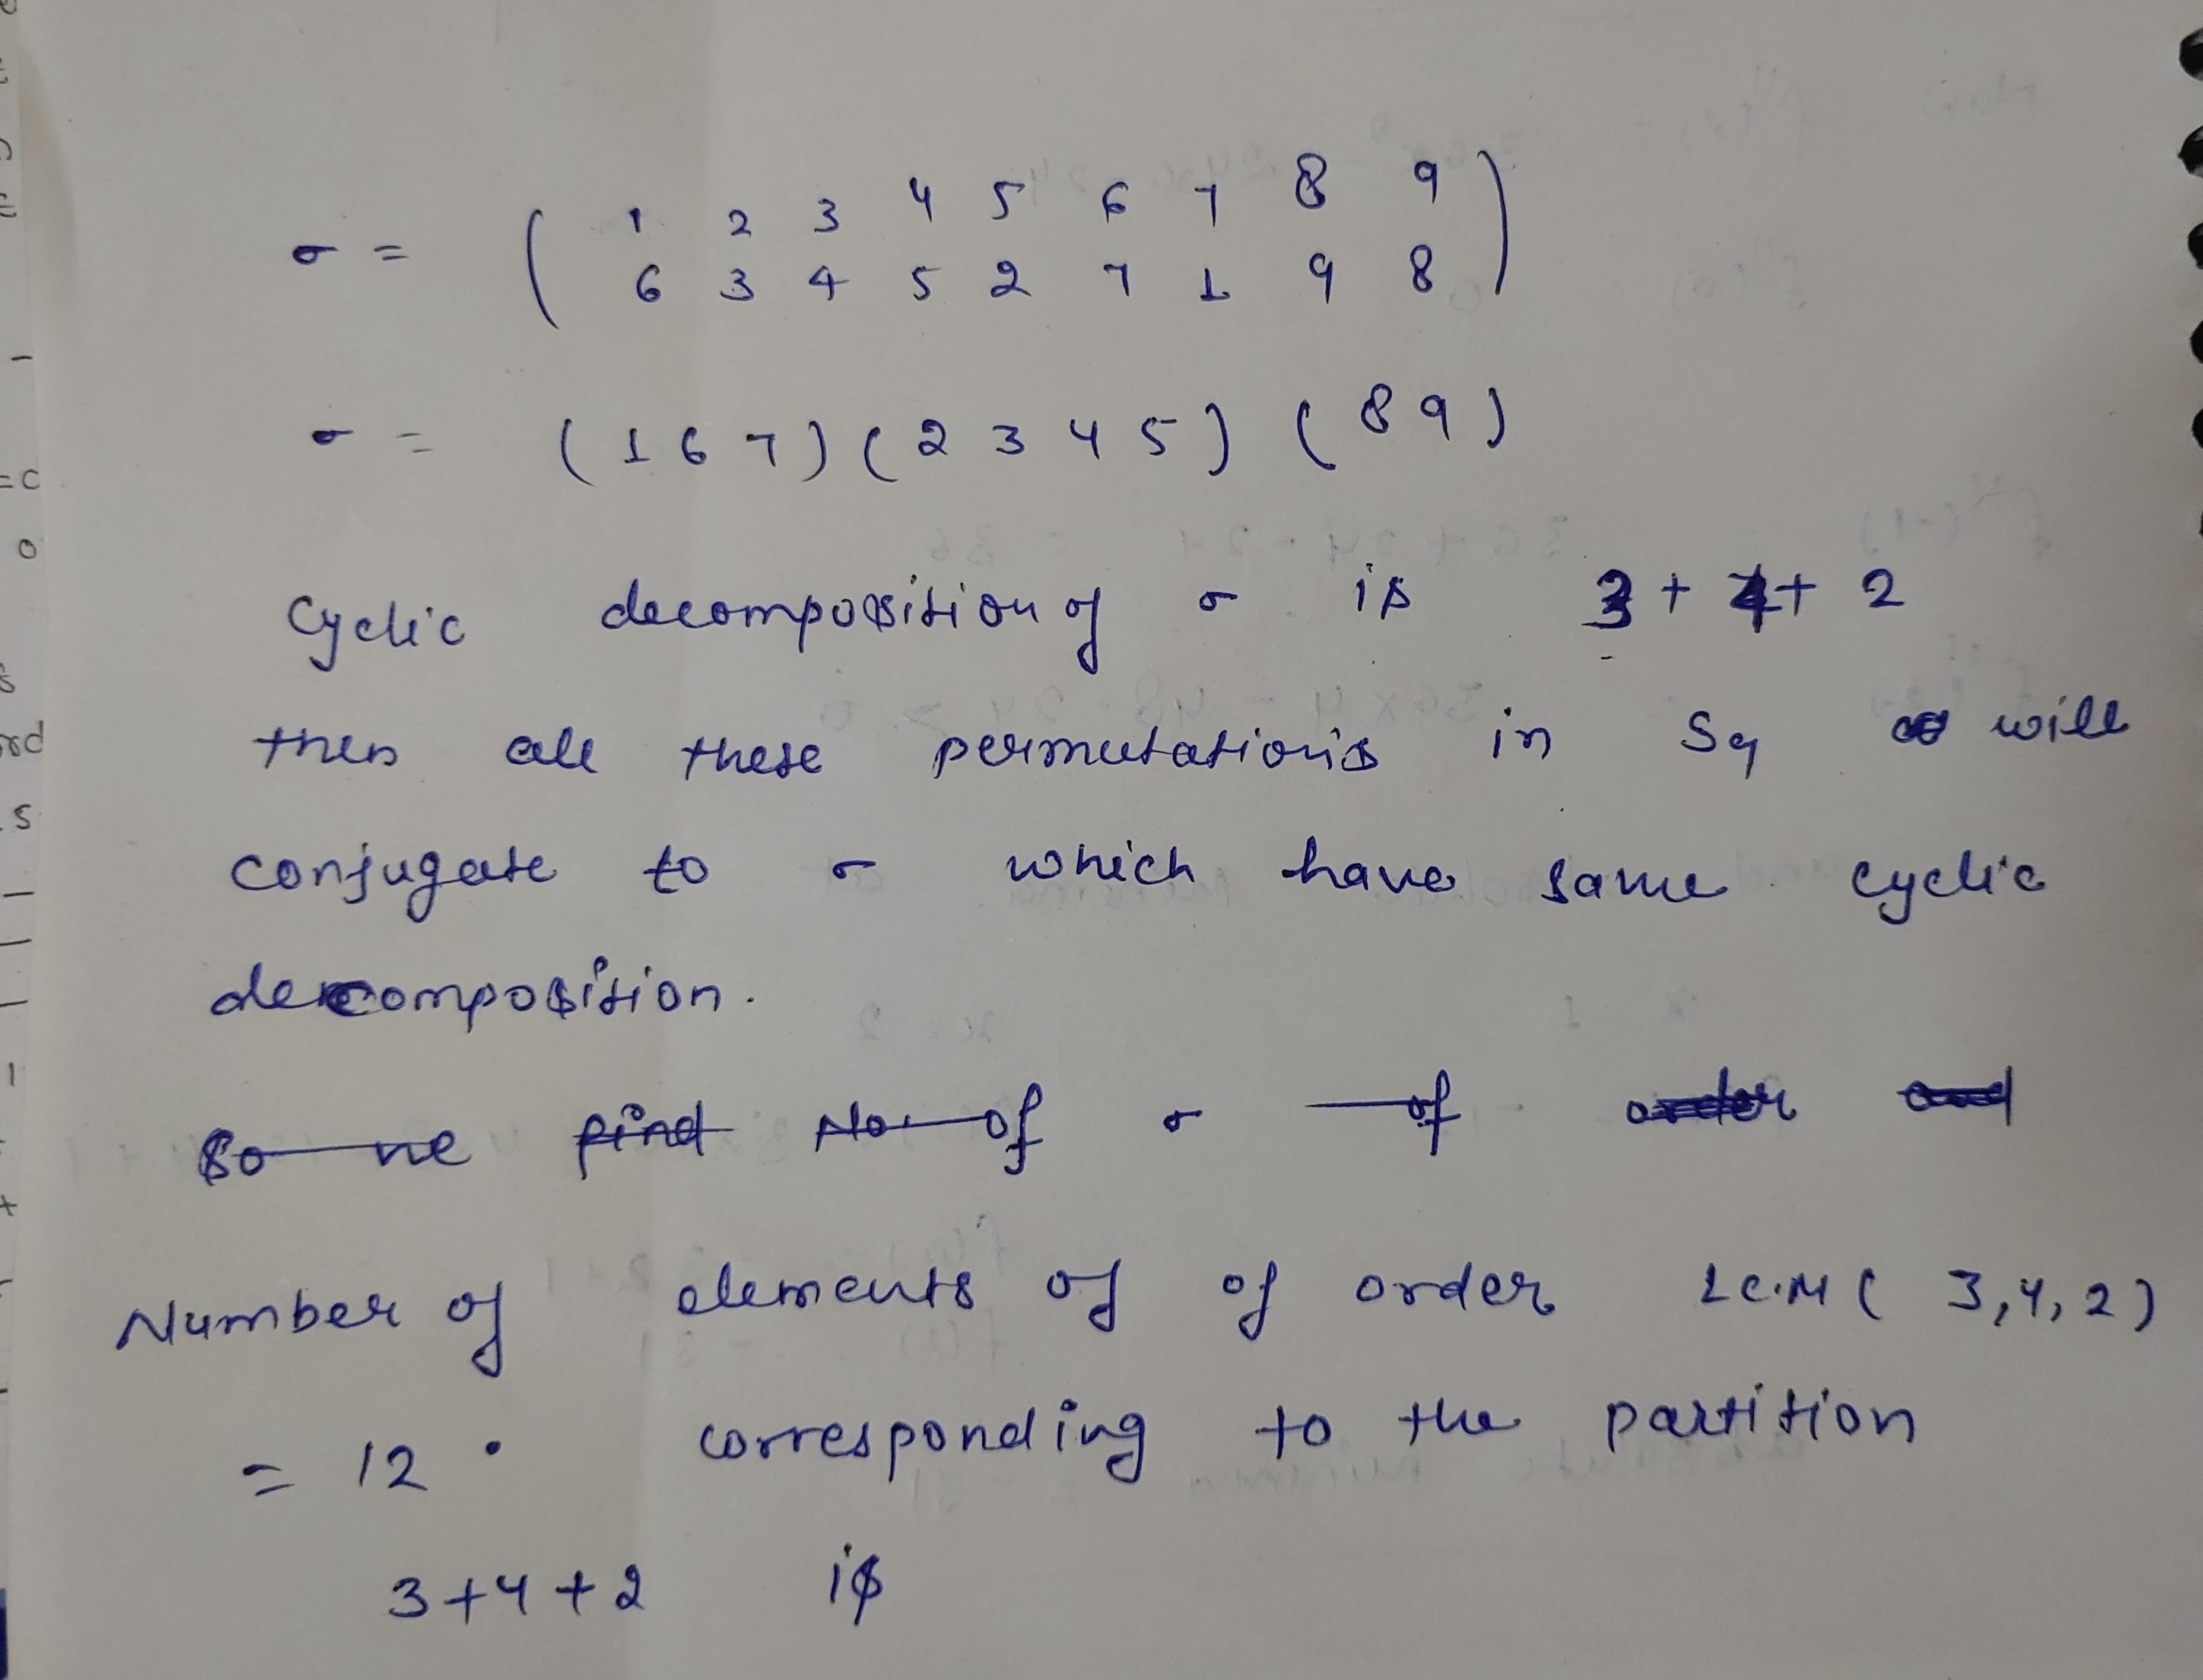 σ = ( 1 2 3 4 5 6 7 8 9 )
6 3 4 5 2 7 1 9 8
σ = (1 6 7) (2 3 4 5) (8 9)
Cyclic decomposition of σ is 3 + 4 + 2
then all these permutations in S9 will
conjugate to σ which have same cyclic
decomposition.
So we find No. of σ of order and
Number of elements of of order LC.M ( 3,4,2)
= 12 . corresponding to the partition
3+4+2 is